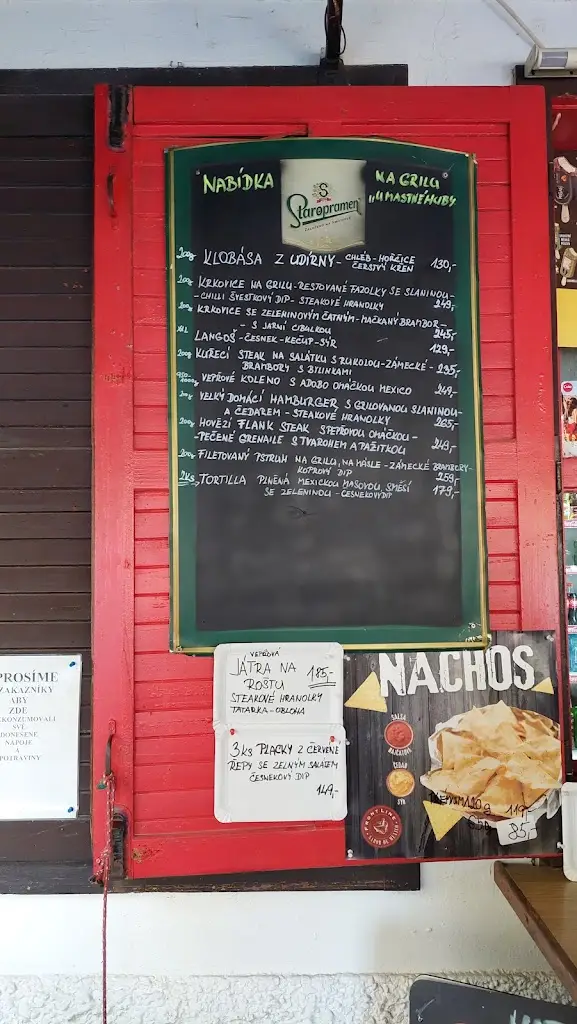 NABÍDKA
Staropramen
NA GRILU
„U MASTNÉ HUBY
200g KLOBÁSA Z UDÍRNY - CHLÉB - HOŘČICE 130,-
ČERSTVÝ KŘEN
200g KRKOVICE NA GRILU - RESTOVANÉ FAZOLKY SE SLANINOU -
- CHILLI ŠVESTKOVÝ DIP - STEAKOVÉ HRANOLKY 249,-
200g KRKOVICE SE ZELENINOVÝM ČATNÝM - MAČKANÝ BRAMBOR -
- S JARNÍ CIBULKOU 245,-
LANGOŠ - ČESNEK - KEČUP - SÝR 129,-
200g KUŘECÍ STEAK NA SALÁTKU S RUKOLOU - ZÁMECKÉ - 235,-
BRAMBORY S BYLINKAMI
VEPŘOVÉ KOLENO S ADOBO OMÁČKOU MEXICO 249,-
VELKÝ DOMÁCÍ HAMBURGER S GRILOVANOU SLANINOU -
A ČEDAREM - STEAKOVÉ HRANOLKY 265,-
200g HOVĚZÍ FLANK STEAK S PEPŘOVOU OMÁČKOU -
- PEČENÉ GRENAILE S TVAROHEM A PAŽITKOU 249,-
200g FILETOVANÝ PSTRUH NA GRILU, NA MÁSLE - ZÁMECKÉ BRAMBORY -
KOPROVÝ DIP 259,-
2KS TORTILLA PLNĚNÁ MEXICKOU MASOVOU SMĚSÍ 179,-
SE ZELENINOU - ČESNEKOVÝ DIP
VEPŘOVÁ
JÁTRA NA 185,-
ROŠTU
STEAKOVÉ HRANOLKY
TATARKA - OBLOHA
3KS PLACKY Z ČERVENÉ
ŘEPY SE ZELNÝM SALÁTEM
ČESNEKOVÝ DIP
149,-
NACHOS
SALSA
RAJČATOVÁ
ČEDAR
SÝR
FRONT LINE
100g 119,-
85,-
PROSÍME
ZÁKAZNÍKY
ABY
ZDE
NEKONZUMOVALI
SVÉ
DONESENÉ
NÁPOJE
A
POTRAVINY